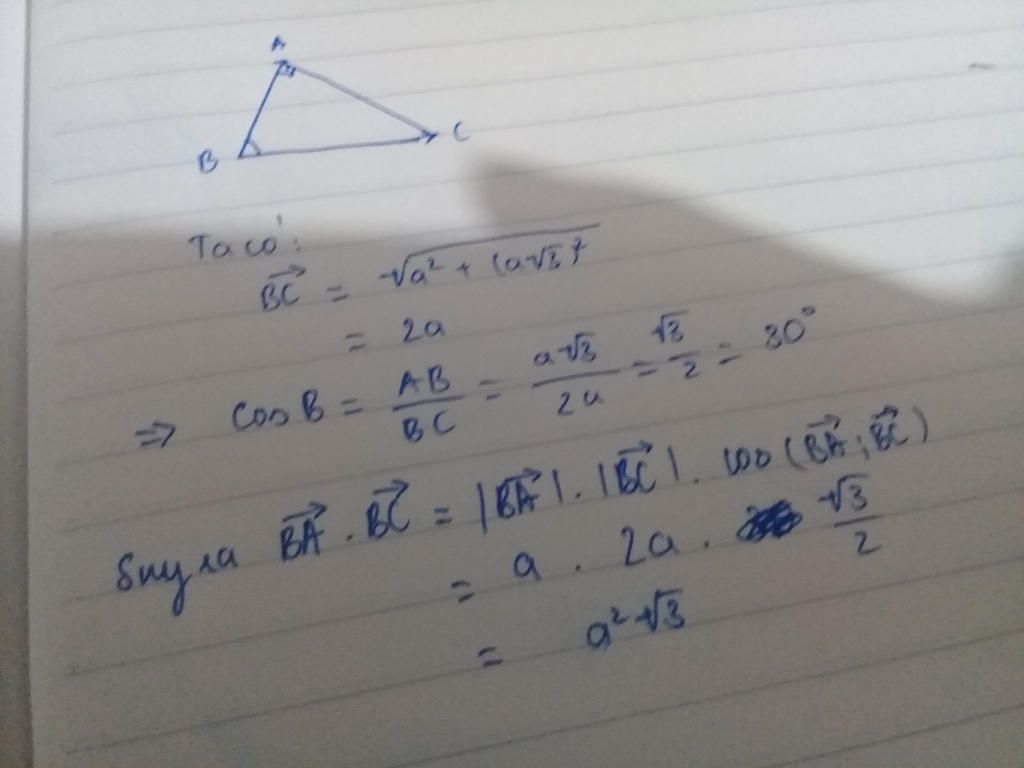 A
B
C
Ta có:
$\overrightarrow{BC} = \sqrt{a^2 + (a\sqrt{3})^2}$
$= 2a$
$\Rightarrow \cos B = \frac{AB}{BC} = \frac{a\sqrt{3}}{2a} = \frac{\sqrt{3}}{2} = 30^\circ$
Suy ra $\overrightarrow{BA} . \overrightarrow{BC} = |\overrightarrow{BA}| . |\overrightarrow{BC}| . \cos(\overrightarrow{BA} ; \overrightarrow{BC})$
$= a . 2a . \frac{\sqrt{3}}{2}$
$= a^2\sqrt{3}$